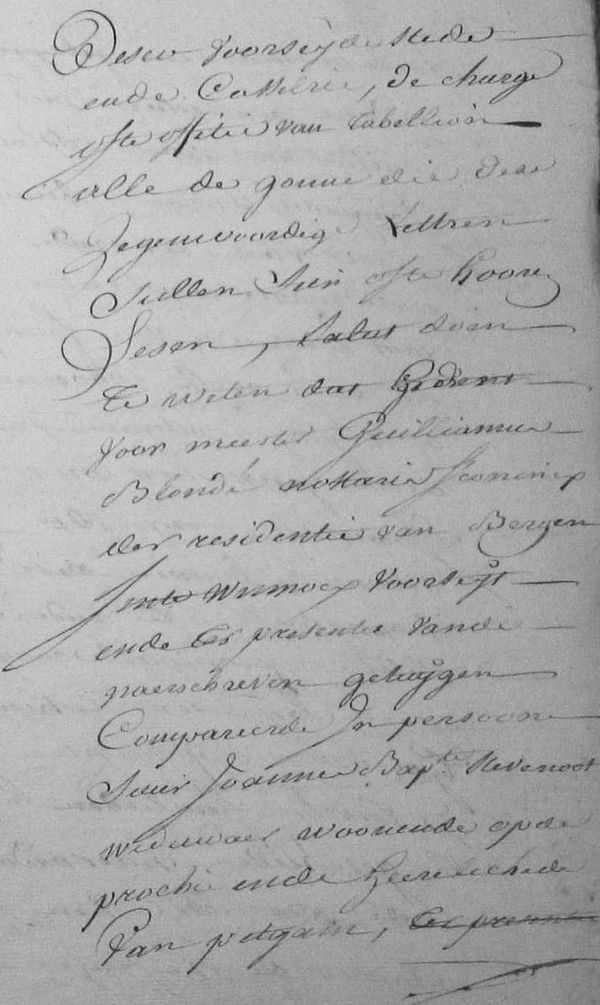 Deser voorseyde stede
ende Casselrie, de charge
ofte offitie van tabellion
alle de gonne die dese
jegenwoordige Lettren
sullen sien ofte hooren
Lesen, salut doen
te weten dat heden
voor meester Guilliame
Blondé notaris s'coninx
der residentie van Bergen
Sinte Winnocx voorseyt
ende ter presentie vande
naerschreven getuygen
Compareerde In persoone
Sieur Joannes Bapte. Stevenoot
weduwaer woonende op de
prochie ende heerelichede
van pitgam, ter presentie